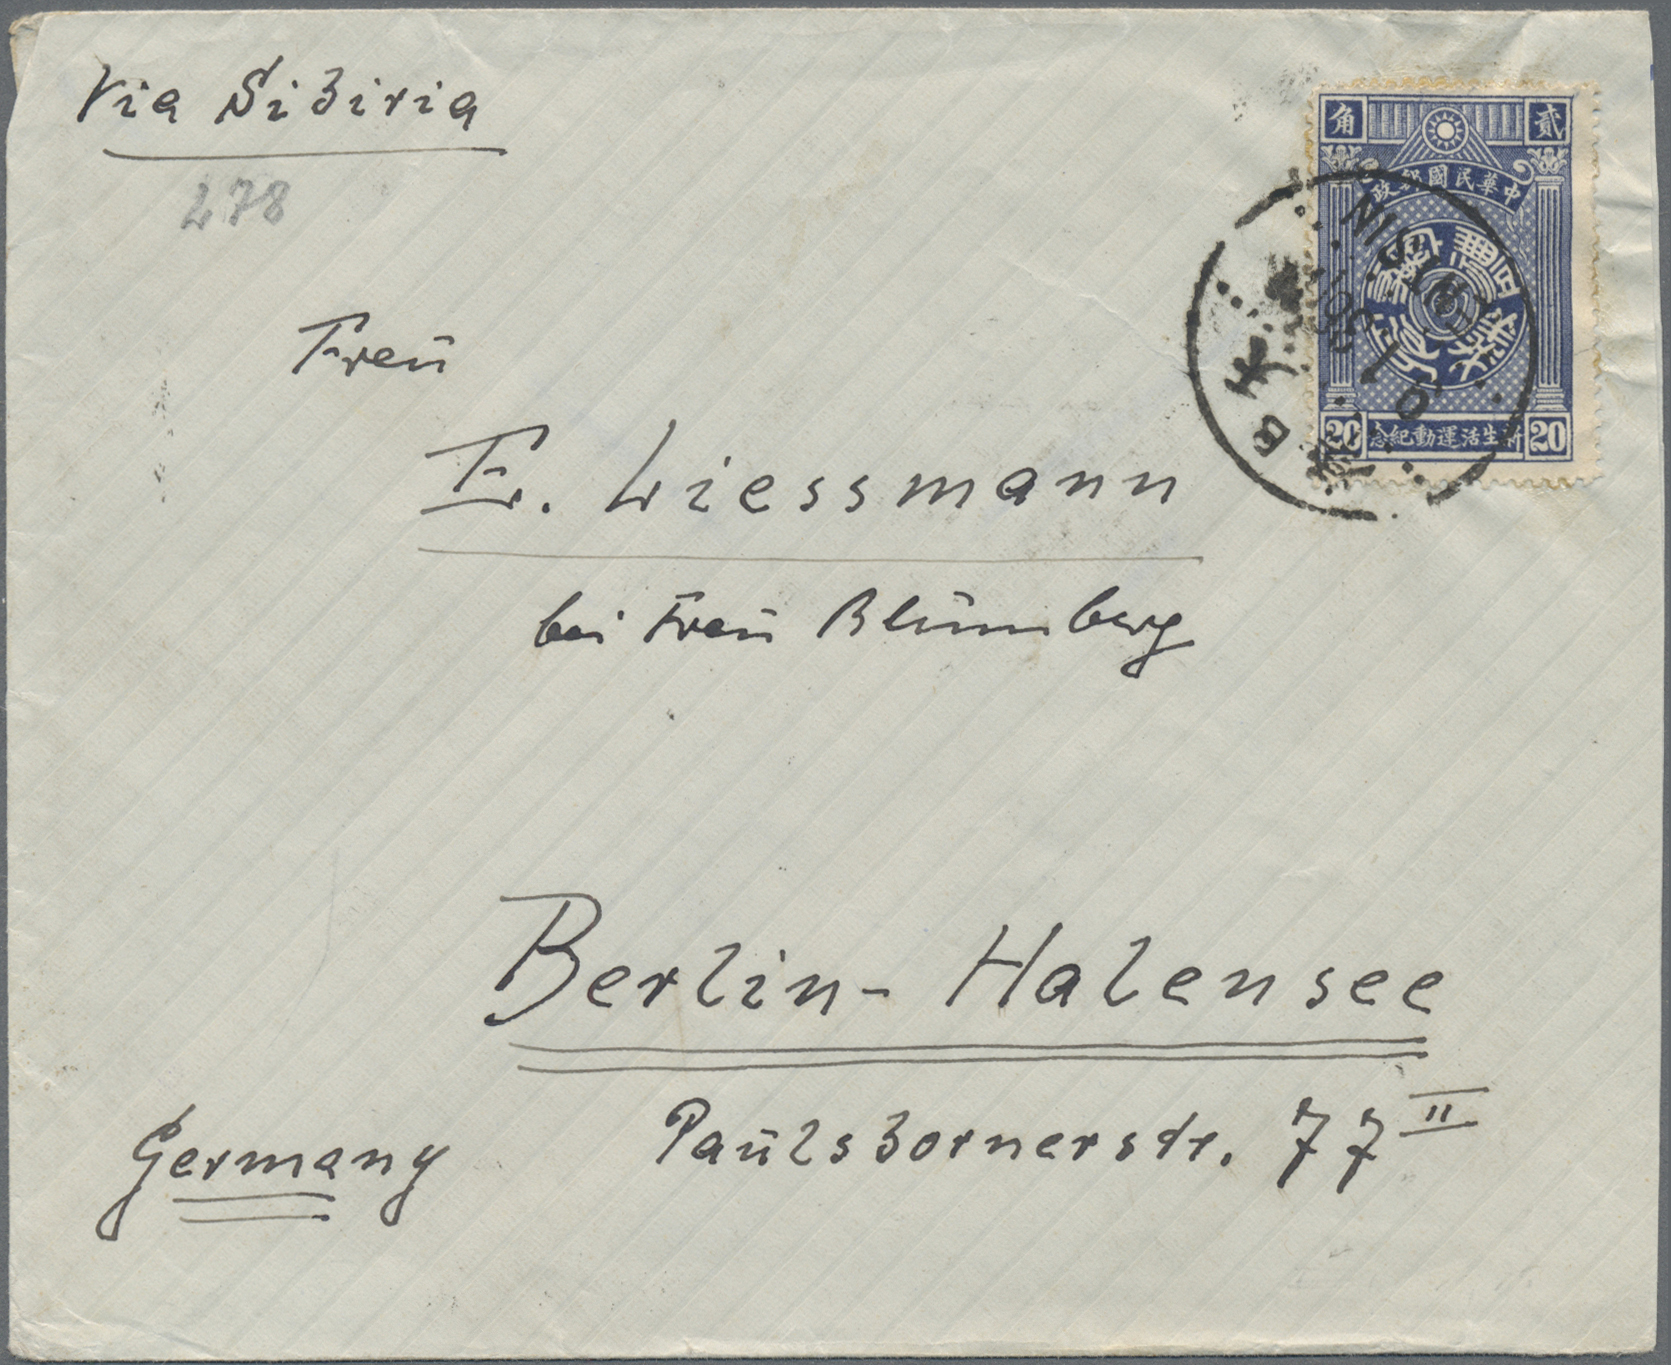 Via Sibiria
278
Frau
E. Wiessmann
bei Frau Blumberg
Berlin-Halensee
Paulsbornerstr. 77 II
Germany
角 貳
中華民國郵政
20 新生活運動紀念 20
TIENTSIN